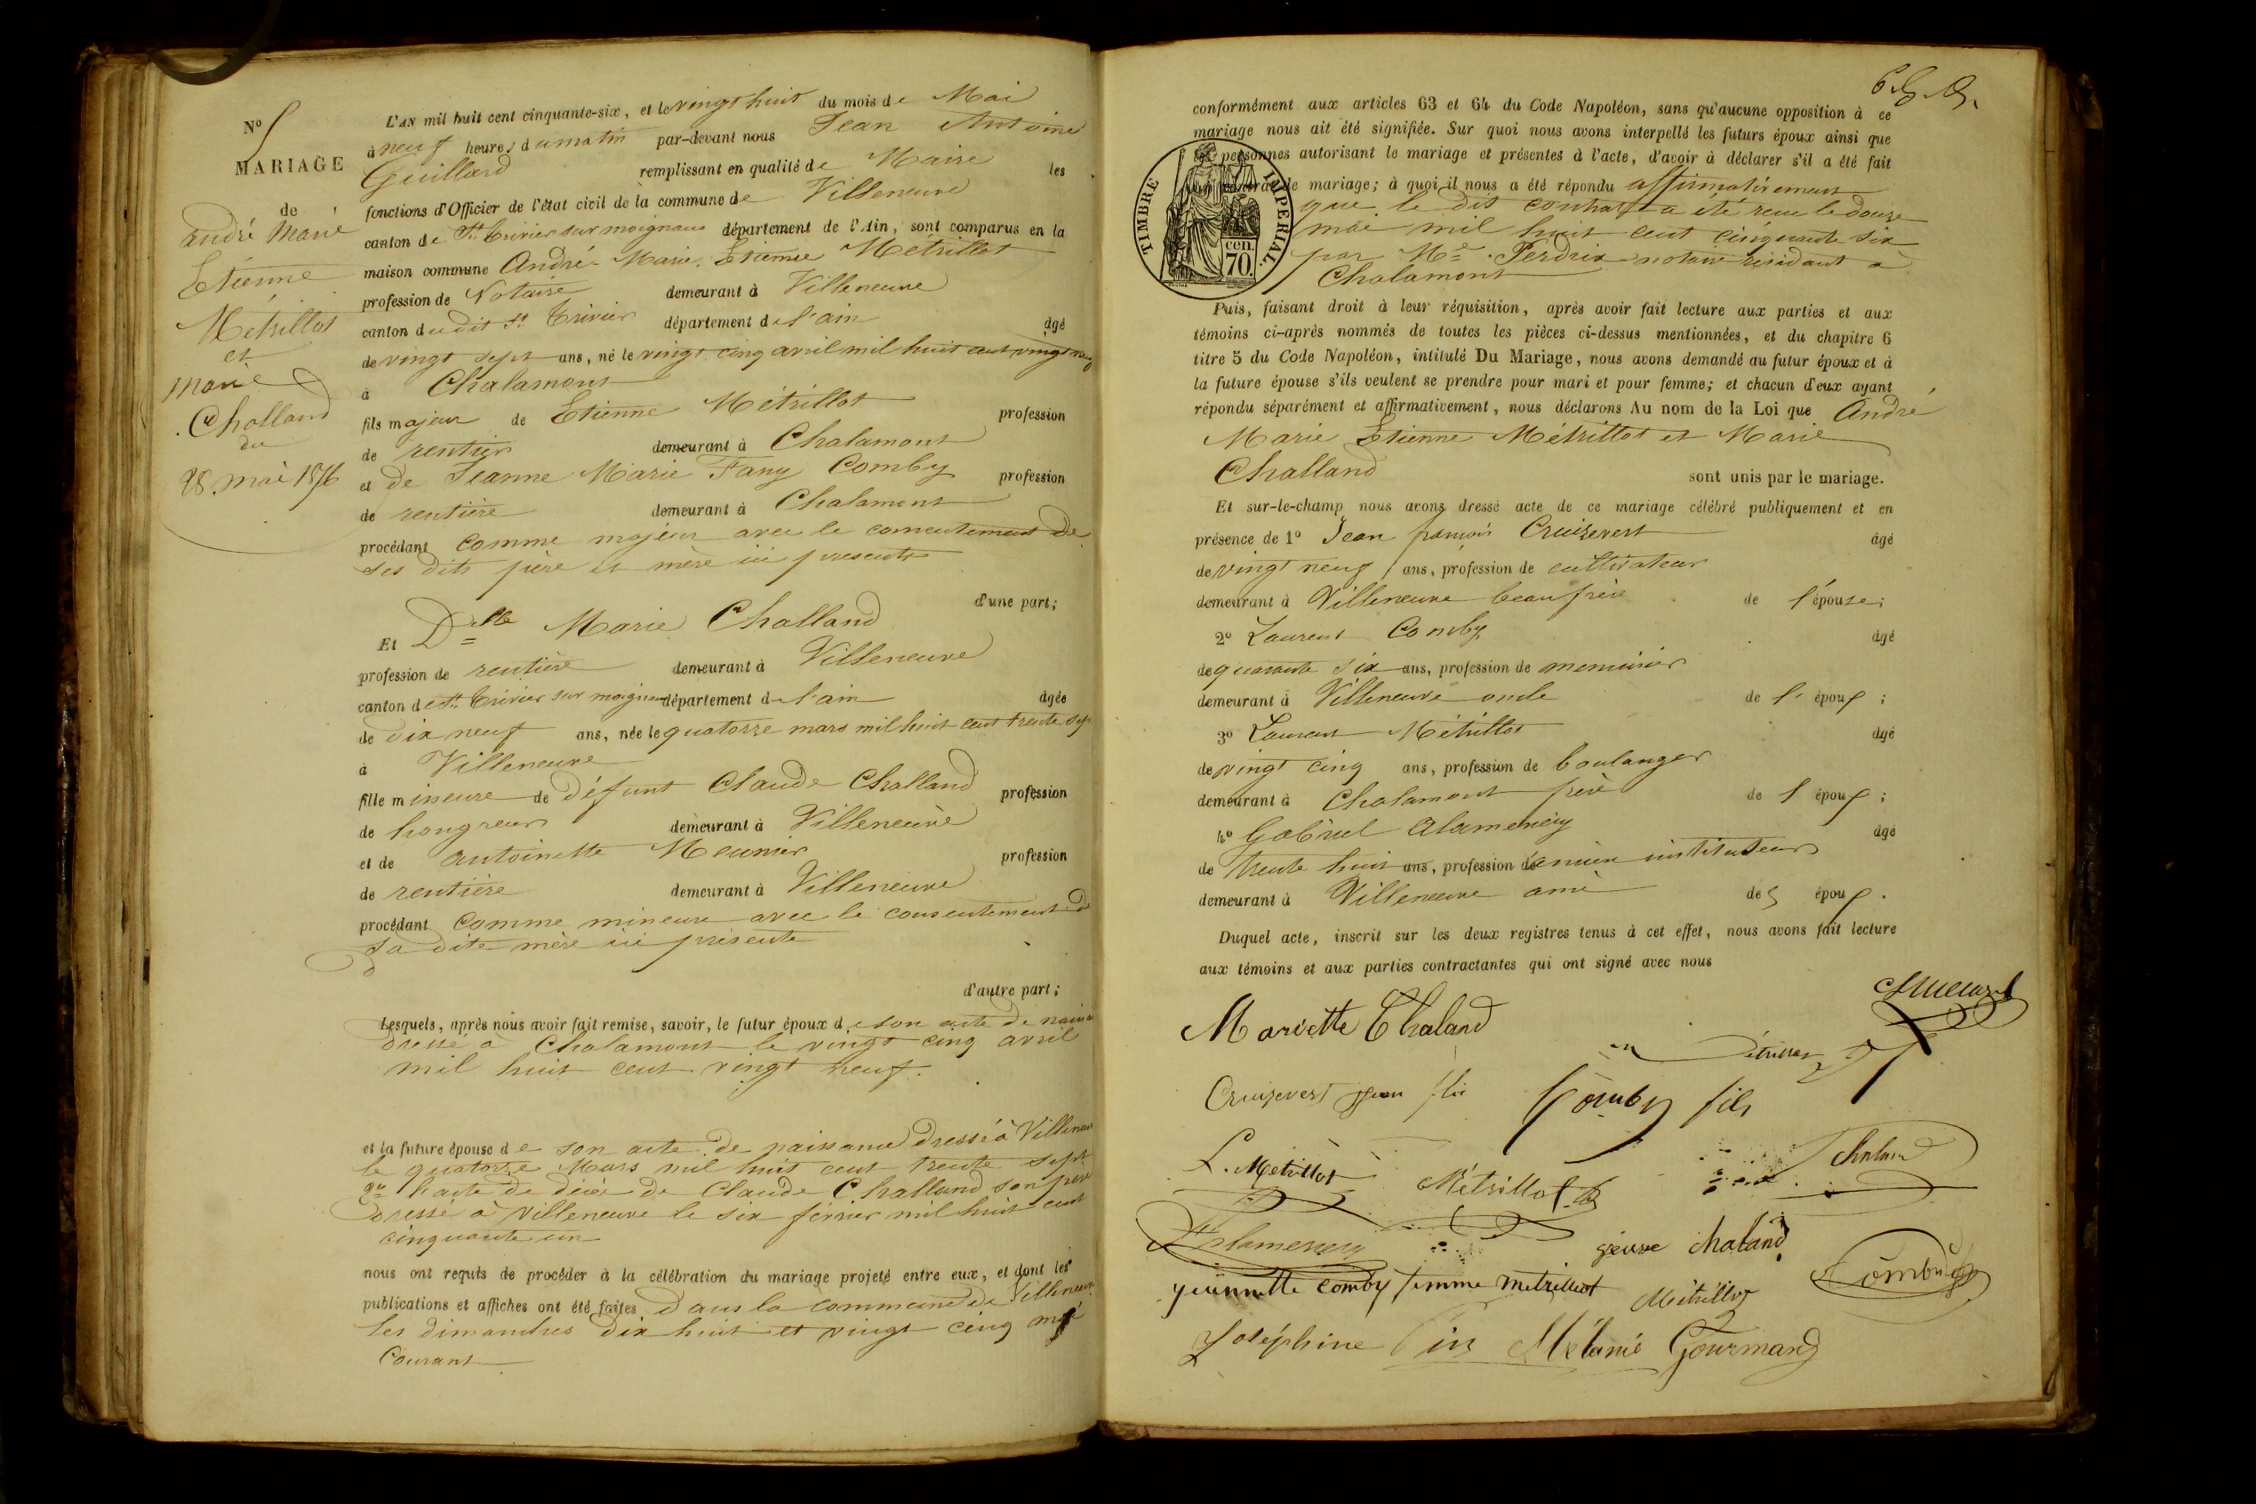 No 5
MARIAGE
de
André Marie
Etienne
Métrillot
et
Marie
Challand
du
28 mai 1856
L'AN mil huit cent cinquante-six, et le vingt huit du mois de Mai
à neuf heures du matin par-devant nous Jean Antoine
Guillard remplissant en qualité de Maire les
fonctions d'Officier de l'état civil de la commune de Villeneuve
canton de St Trivier sur moignans département de l'Ain, sont comparus en la
maison commune André Marie Etienne Métrillot
profession de Notaire demeurant à Villeneuve
canton du dit St Trivier département de l'ain âgé
de vingt sept ans, né le vingt cinq avril mil huit cent vingt neuf
à Chalamont
fils majeur de Etienne Métrillot profession
de rentier demeurant à Chalamont
et de Jeanne Marie Fany Comby profession
de rentière demeurant à Chalamont
procédant comme majeur avec le consentement de
ses dits père et mère ici présents
d'une part;
Et Dlle Marie Challand
profession de rentière demeurant à Villeneuve
canton de St Trivier sur moignans département de l'ain âgée
de dix neuf ans, née le quatorze mars mil huit cent trente sept
à Villeneuve
fille mineure de défunt Claude Challand profession
de hongreur demeurant à Villeneuve
et de antoinette Meunier profession
de rentière demeurant à Villeneuve
procédant comme mineure avec le consentement de
sa dite mère ici présente
d'autre part;
Lesquels, après nous avoir fait remise, savoir, le futur époux de son acte de
dressé à Chalamont le vingt cinq avril
mil huit cent vingt neuf.
et la future épouse de son acte de naissance dressé à Villeneuve
le quatorze Mars mil huit cent trente sept
2o l'acte de décès de Claude Challand son père
dressé à Villeneuve le six février mil huit cent
cinquante un
nous ont requis de procéder à la célébration du mariage projeté entre eux, et dont les
publications et affiches ont été faites dans la commune de Villeneuve
les dimanches dix huit et vingt cinq mai
courant
conformément aux articles 63 et 64 du Code Napoléon, sans qu'aucune opposition à ce
mariage nous ait été signifiée. Sur quoi nous avons interpellé les futurs époux ainsi que
les personnes autorisant le mariage et présentes à l'acte, d'avoir à déclarer s'il a été fait
un contrat de mariage; à quoi il nous a été répondu affirmativement
que le dit contrat a été reçu le douze
mai mil huit cent cinquante six
par Me Ferdrix notaire résidant à
Chalamont
TIMBRE IMPERIAL.
70. cen
Puis, faisant droit à leur réquisition, après avoir fait lecture aux parties et aux
témoins ci-après nommés de toutes les pièces ci-dessus mentionnées, et du chapitre 6
titre 5 du Code Napoléon, intitulé Du Mariage, nous avons demandé au futur époux et à
la future épouse s'ils veulent se prendre pour mari et pour femme; et chacun d'eux ayant
répondu séparément et affirmativement, nous déclarons Au nom de la Loi que André
Marie Etienne Métrillot et Marie
Challand sont unis par le mariage.
Et sur-le-champ nous avons dressé acte de ce mariage célébré publiquement et en
présence de 1o Jean françois Cruizevert âgé
de vingt neuf ans, profession de cultivateur
demeurant à Villeneuve beau frère de l'épouse;
2o Laurent Comby âgé
de quarante six ans, profession de menuisier
demeurant à Villeneuve oncle de l'époux;
3o Laurent Métrillot âgé
de vingt cinq ans, profession de boulanger
demeurant à Chalamont frère de l'époux;
4o Gabriel Alamercery âgé
de trente huit ans, profession de ancien instituteur
demeurant à Villeneuve ami des époux.
Duquel acte, inscrit sur les deux registres tenus à cet effet, nous avons fait lecture
aux témoins et aux parties contractantes qui ont signé avec nous
Mariette Chaland
Cruizevert Jean
Comby fils
L. Métrillot
Métrillot
Chaland
Alamercery
chaland
Comby
jeannette comby femme metrillot Métrillot
Joséphine Pin Mélanie Gourmand